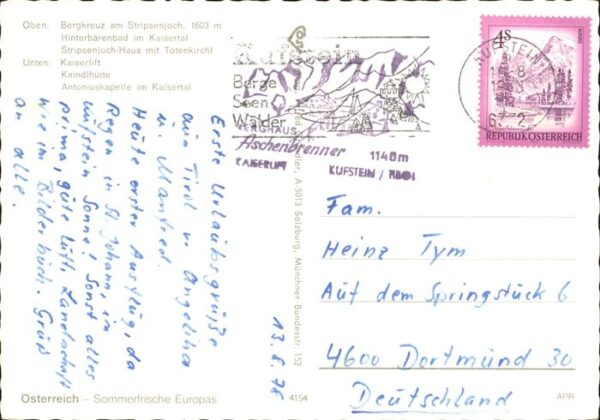 Oben: Bergkreuz am Stripsenjoch, 1603 m
Hinterbärenbad im Kaisertal
Stripsenjoch-Haus mit Totenkirchl
Unten: Kaiserlift
Kaindlhutte
Antoniuskapelle im Kaisertal
Kufstein
Berge
Seen
Wälder
BERGHAUS
Aschenbrenner
1140m
KAISERLIFT
KUFSTEIN / TIROL
KUFSTEIN
4S
REPUBLIK ÖSTERREICH
A-5013 Salzburg, Münchner Bundesstr. 152
Erste Urlaubsgrüße
aus Tirol v. Angelika
u. Manfred.
Heute erster Ausflug, da
Regen in St. Johann, in
Kufstein Sonne! Sonst alles
prima, gute Luft, Landschaft
wie im Bilderbuch. Gruß
an alle.
13.6.78
Fam.
Heinz Tym
Auf dem Springstück 6
4600 Dortmund 30
Deutschland
Österreich – Sommerfrische Europas
4154
APR